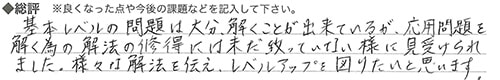 ◆総評 ※良くなった点や今後の課題などを記入して下さい。
基本レベルの問題は大分、解くことが出来ているが、応用問題を
解く為の解法の修得には未だ致っていない様に見受けられ
ました。様々な解法を伝え、レベルアップを図りたいと思います。